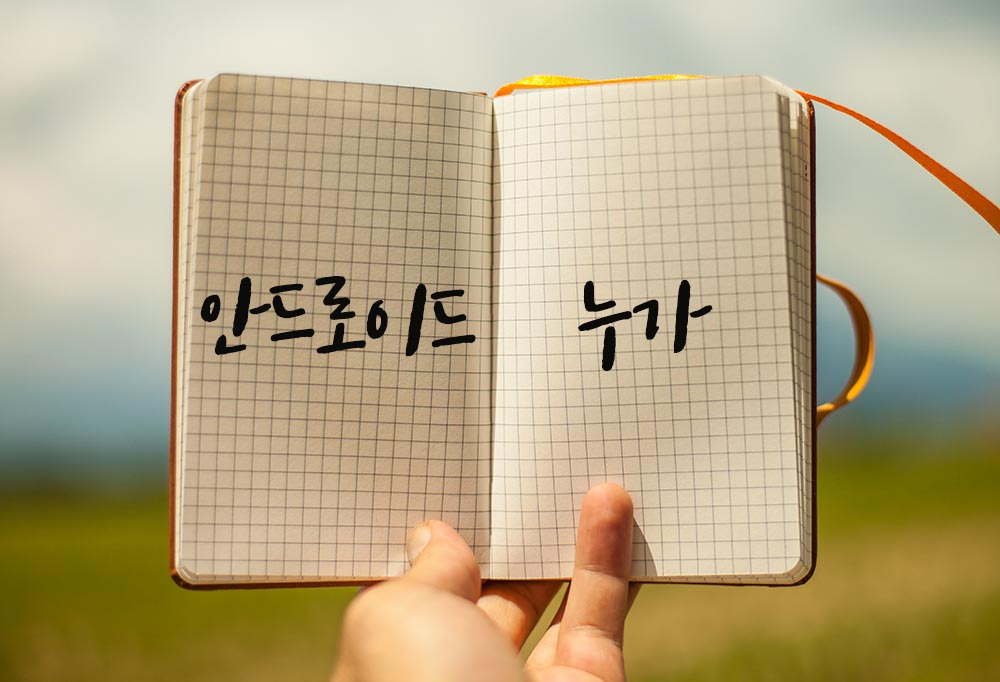 안드로이드 누가